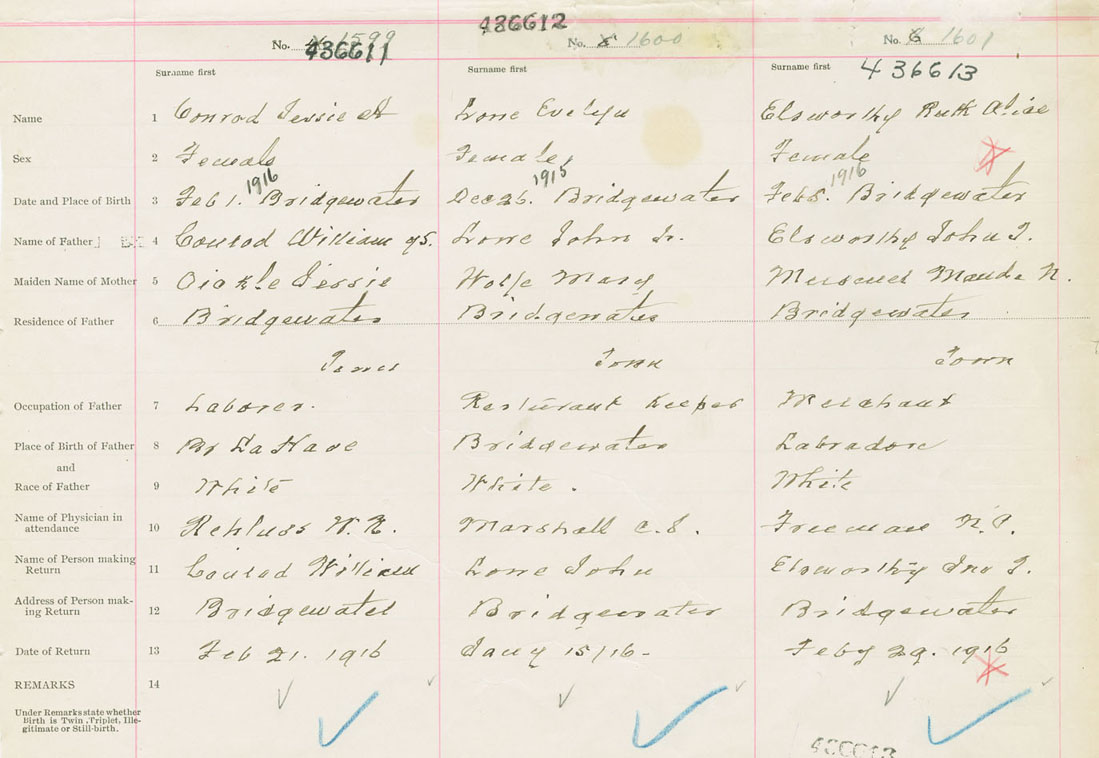 436612
No. 1599 No. 1600 No. 1601
436611
Surname first Surname first Surname first 436613
Name 1 Conrod Jessie Lowe Evelyn Elsworthy Ruth Alice
Sex 2 Female Female Female
1916 1915 1916
Date and Place of Birth 3 Feb 1. Bridgewater Dec 26. Bridgewater Feb 8. Bridgewater
Name of Father 4 Conrod William Lowe John Elsworthy John T.
Maiden Name of Mother 5 Oickle Jessie Wolfe Mary Maude N.
Residence of Father 6 Bridgewater Bridgewater Bridgewater
Town Town Town
Occupation of Father 7 Laborer. Resturant Keeper Merchant
Place of Birth of Father 8 LaHave Bridgewater Labradore
and
Race of Father 9 White White. White
Name of Physician in
attendance 10 W. Marshall C. S. Freeman N. P.
Name of Person making
Return 11 Conrod William Lowe John Elsworthy Jno T.
Address of Person mak-
ing Return 12 Bridgewater Bridgewater Bridgewater
Date of Return 13 Feb 21. 1916 Jany 15/16- Feby 29. 1916
REMARKS 14
Under Remarks state whether
Birth is Twin, Triplet, Ille-
gitimate or Still-birth.